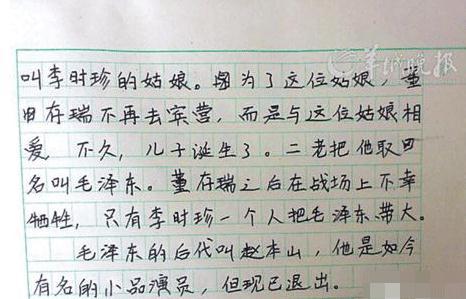 羊城晚报
叫李时珍的姑娘。因为了这位姑娘，董
存瑞不再去宾营，而是与这位姑娘相
爱，不久，儿子诞生了。二老把他取
名叫毛泽东。董存瑞之后在战场上不幸
牺牲，只有李时珍一个人把毛泽东带大。
毛泽东的后代叫赵本山，他是如今
有名的小品演员，但现已退出。